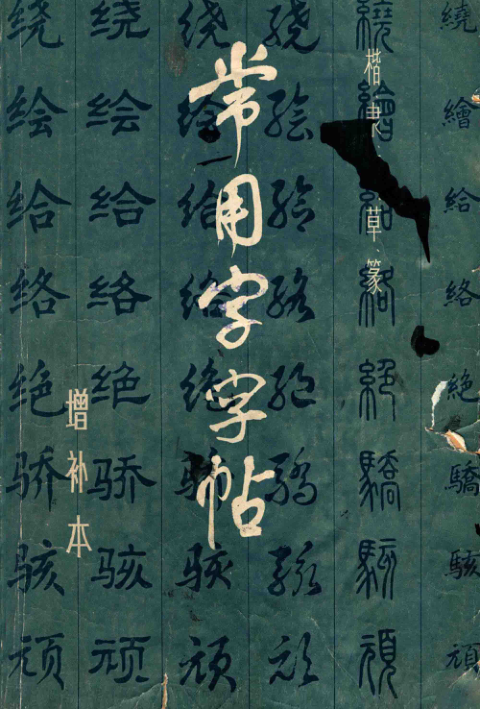 繞繪給絡絶驕駭頑
繞繪給絡絕驕駭頑
楷
草·篆
常用字字帖
绕绘给络绝骄骇顽
绕绘给络绝骄骇顽
增补本
绕绘给络绝骄骇顽
绕绘给络绝骄骇顽